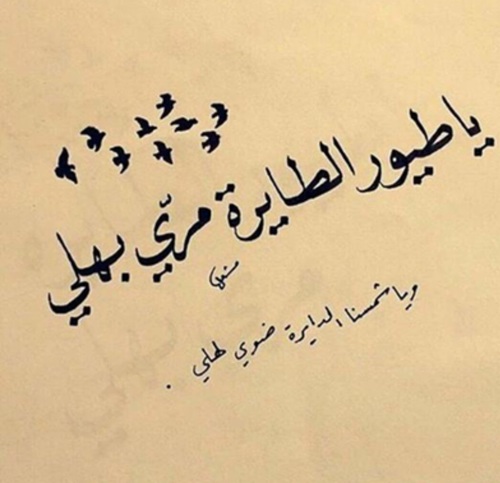 يا طيور الطايرة مرّي بهلي
ويا شمسنا الدايرة ضوي لهلي .